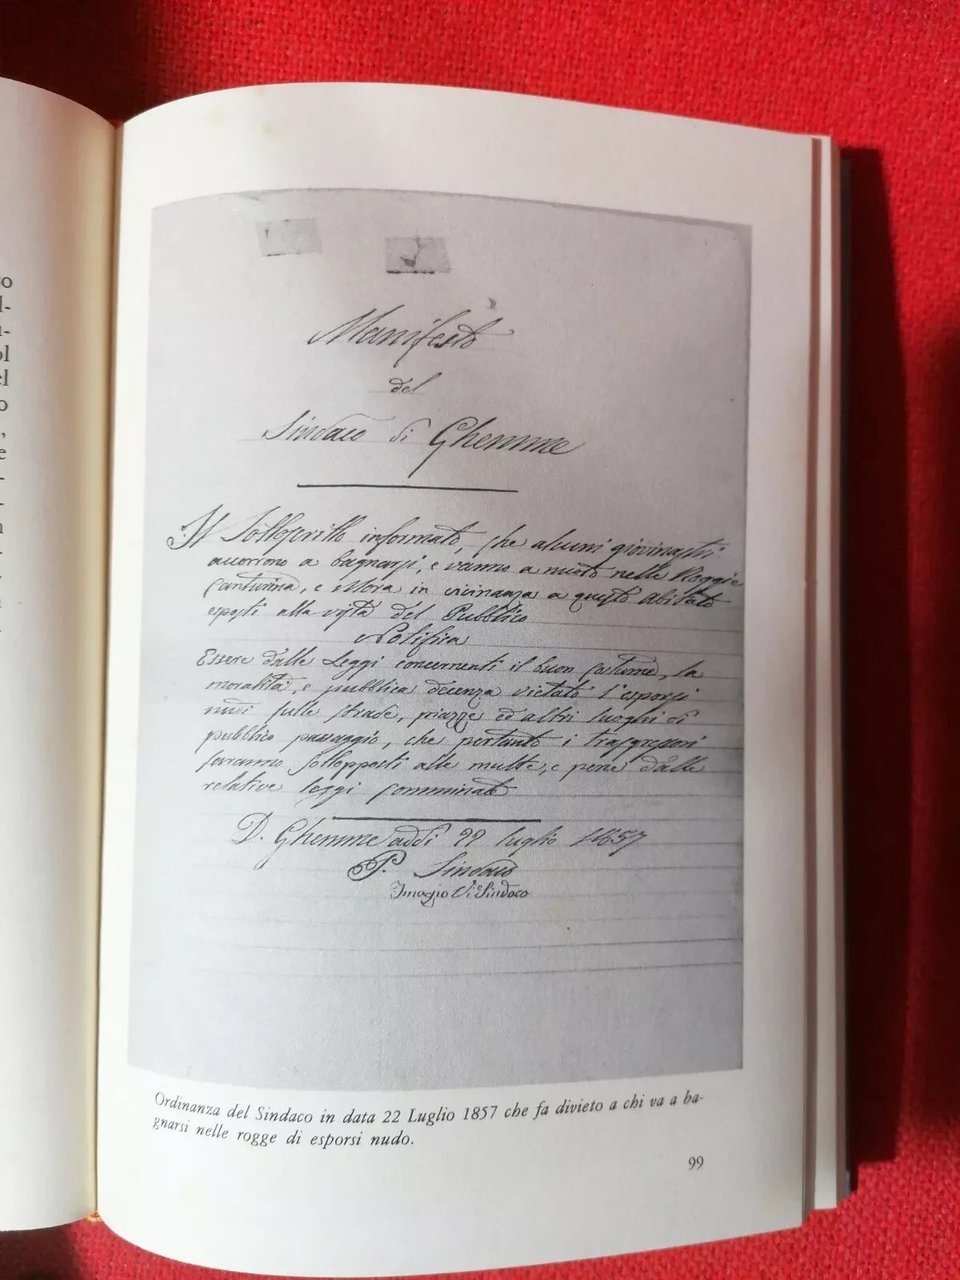 so
l-
ol
el
o
,
e
-
Manifesto
del
Sindaco di Ghemme
Il Sottoscritto informato, che alcuni giovinastri
accorrono a bagnarsi, e vanno a nuoto nelle Roggie
Canturina, e Mora in vicinanza a questo abitato
esposti alla vista del Pubblico
Notifica
Essere dalle Leggi concernenti il buon costume, la
moralità, e pubblica decenza vietato l'esporsi
nudi sulle strade, piazze ed altri luoghi di
pubblico passaggio, che pertanto i trasgressori
saranno sottopposti alle multe, e pene dalle
relative leggi comminate
D. Ghemme addì 22 luglio 1857
P. Sindaco
Sindaco
Ordinanza del Sindaco in data 22 Luglio 1857 che fa divieto a chi va a ba-
gnarsi nelle rogge di esporsi nudo.
99